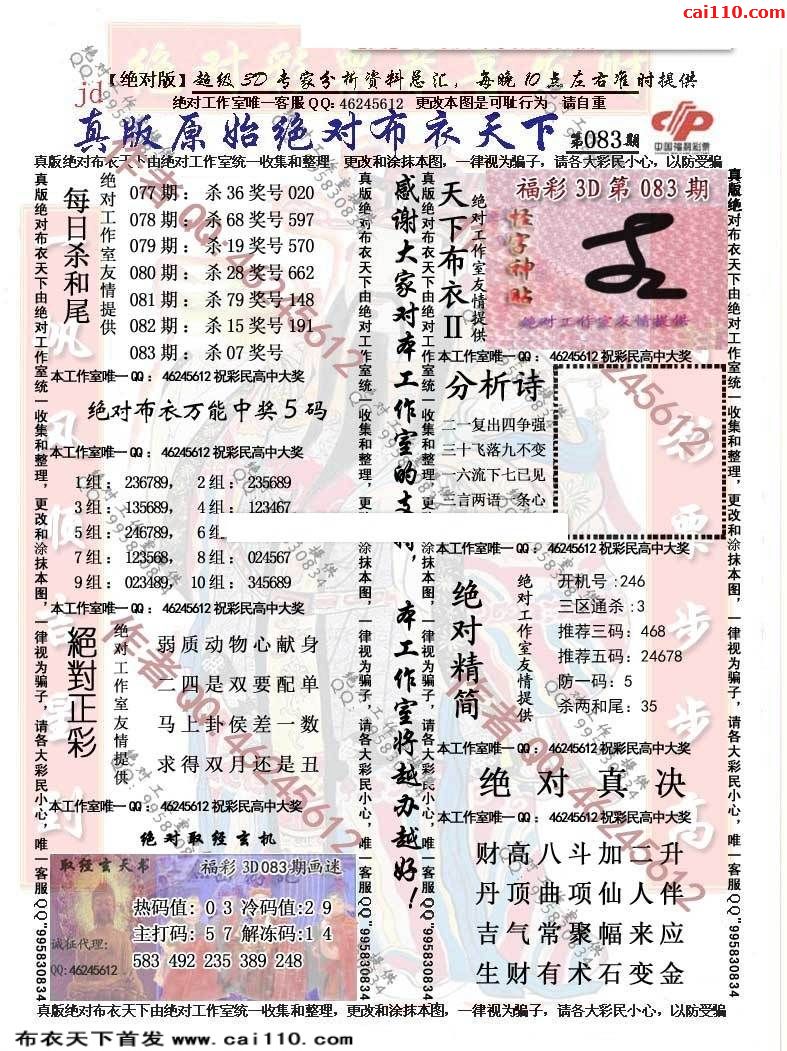 cai110.com
【绝对版】超级3D专家分析资料总汇，每晚10点左右准时提供
jd
绝对工作室唯一客服QQ: 46245612 更改本图是可耻行为 请自重
真版原始绝对布衣天下 第083期
中国福利彩票
真版绝对布衣天下由绝对工作室统一收集和整理，更改和涂抹本图，一律视为骗子，请各大彩民小心，以防受骗
每日杀和尾
绝对工作室友情提供
077期：杀36奖号020
078期：杀68奖号597
079期：杀19奖号570
080期：杀28奖号662
081期：杀79奖号148
082期：杀15奖号191
083期：杀07奖号
本工作室唯一QQ：46245612祝彩民高中大奖
绝对布衣万能中奖5码
本工作室唯一QQ：46245612祝彩民高中大奖
1组：236789， 2组：235689
3组：135689， 4组：123467
5组：246789， 6组
7组：123568， 8组：024567
9组：023489， 10组：345689
本工作室唯一QQ：46245612祝彩民高中大奖
絕對正彩
绝对工作室友情提供
弱质动物心献身
二四是双要配单
马上卦侯差一数
求得双月还是丑
本工作室唯一QQ：46245612祝彩民高中大奖
绝对取经玄机
取经玄天书 福彩3D083期画迷
热码值：03冷码值:29
主打码：57解冻码:14
583 492 235 389 248
诚征代理:
QQ:46245612
真版绝对布衣天下由绝对工作室统一收集和整理，更改和涂抹本图，一律视为骗子，请各大彩民小心，唯一客服QQ"995830834
感谢大家对本工作室的支持，本工作室将越办越好！
天下布衣II
绝对工作室友情提供
福彩3D第083期
怪字神贴
绝对工作室友情提供
本工作室唯一QQ：46245612祝彩民高中大奖
分析诗
二一复出四争强
三十飞落九不变
一六流下七已见
三言两语一条心
本工作室唯一QQ：46245612祝彩民高中大奖
绝对精简
绝对工作室友情提供
开机号:246
三区通杀:3
推荐三码：468
推荐五码：24678
防一码：5
杀两和尾：35
本工作室唯一QQ：46245612祝彩民高中大奖
绝对真决
本工作室唯一QQ：46245612祝彩民高中大奖
财高八斗加二升
丹顶曲项仙人伴
吉气常聚幅来应
生财有术石变金
真版绝对布衣天下由绝对工作室统一收集和整理，更改和涂抹本图，一律视为骗子，请各大彩民小心，以防受骗
布衣天下首发 www.cai110.com